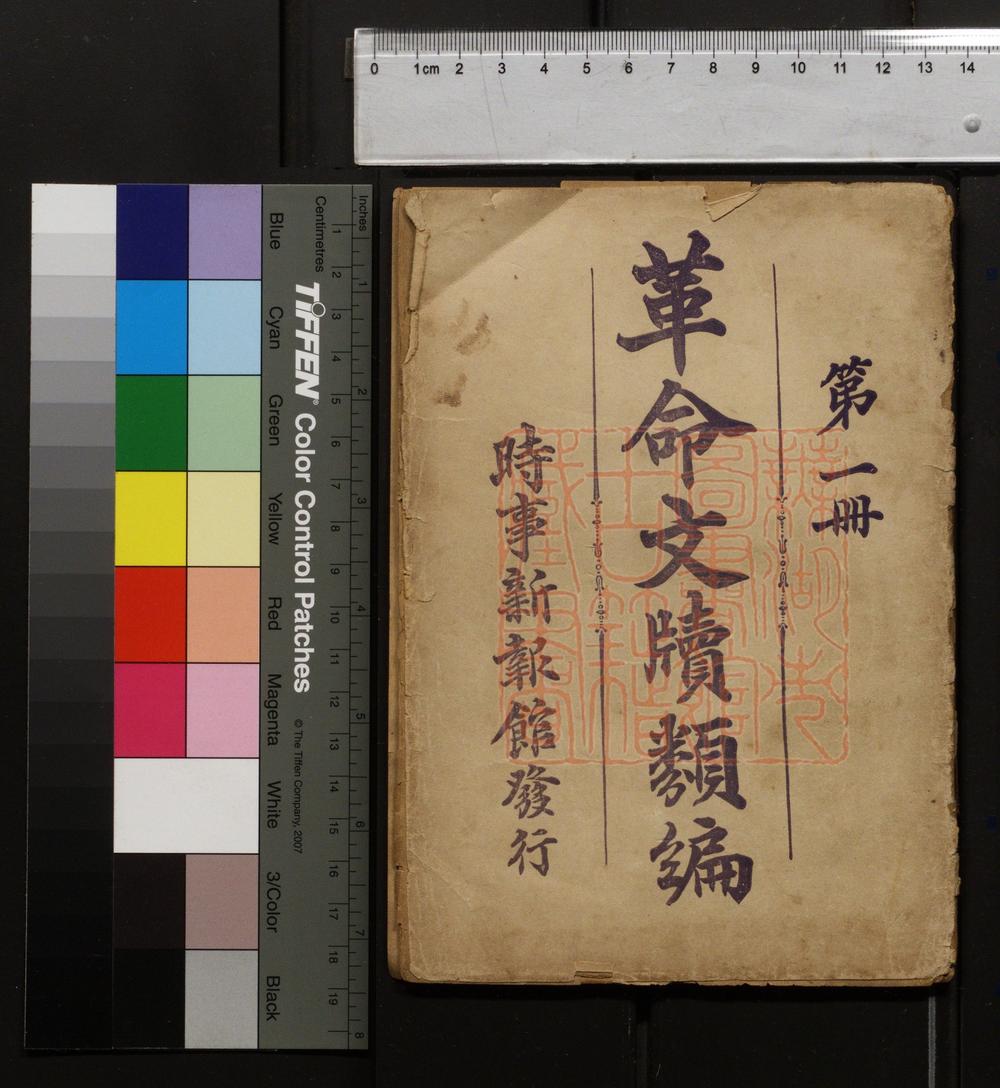 0 1cm 2 3 4 5 6 7 8 9 10 11 12 13 14
第一冊
革命文牘類編
時事新報館發行
Inches
Centimetres
1 2 3 4 5 6 7 8
1 2 3 4 5 6 7 8 9 10 11 12 13 14 15 16 17 18 19
TIFFEN® Color Control Patches
© The Tiffen Company, 2007
Blue
Cyan
Green
Yellow
Red
Magenta
White
3/Color
Black